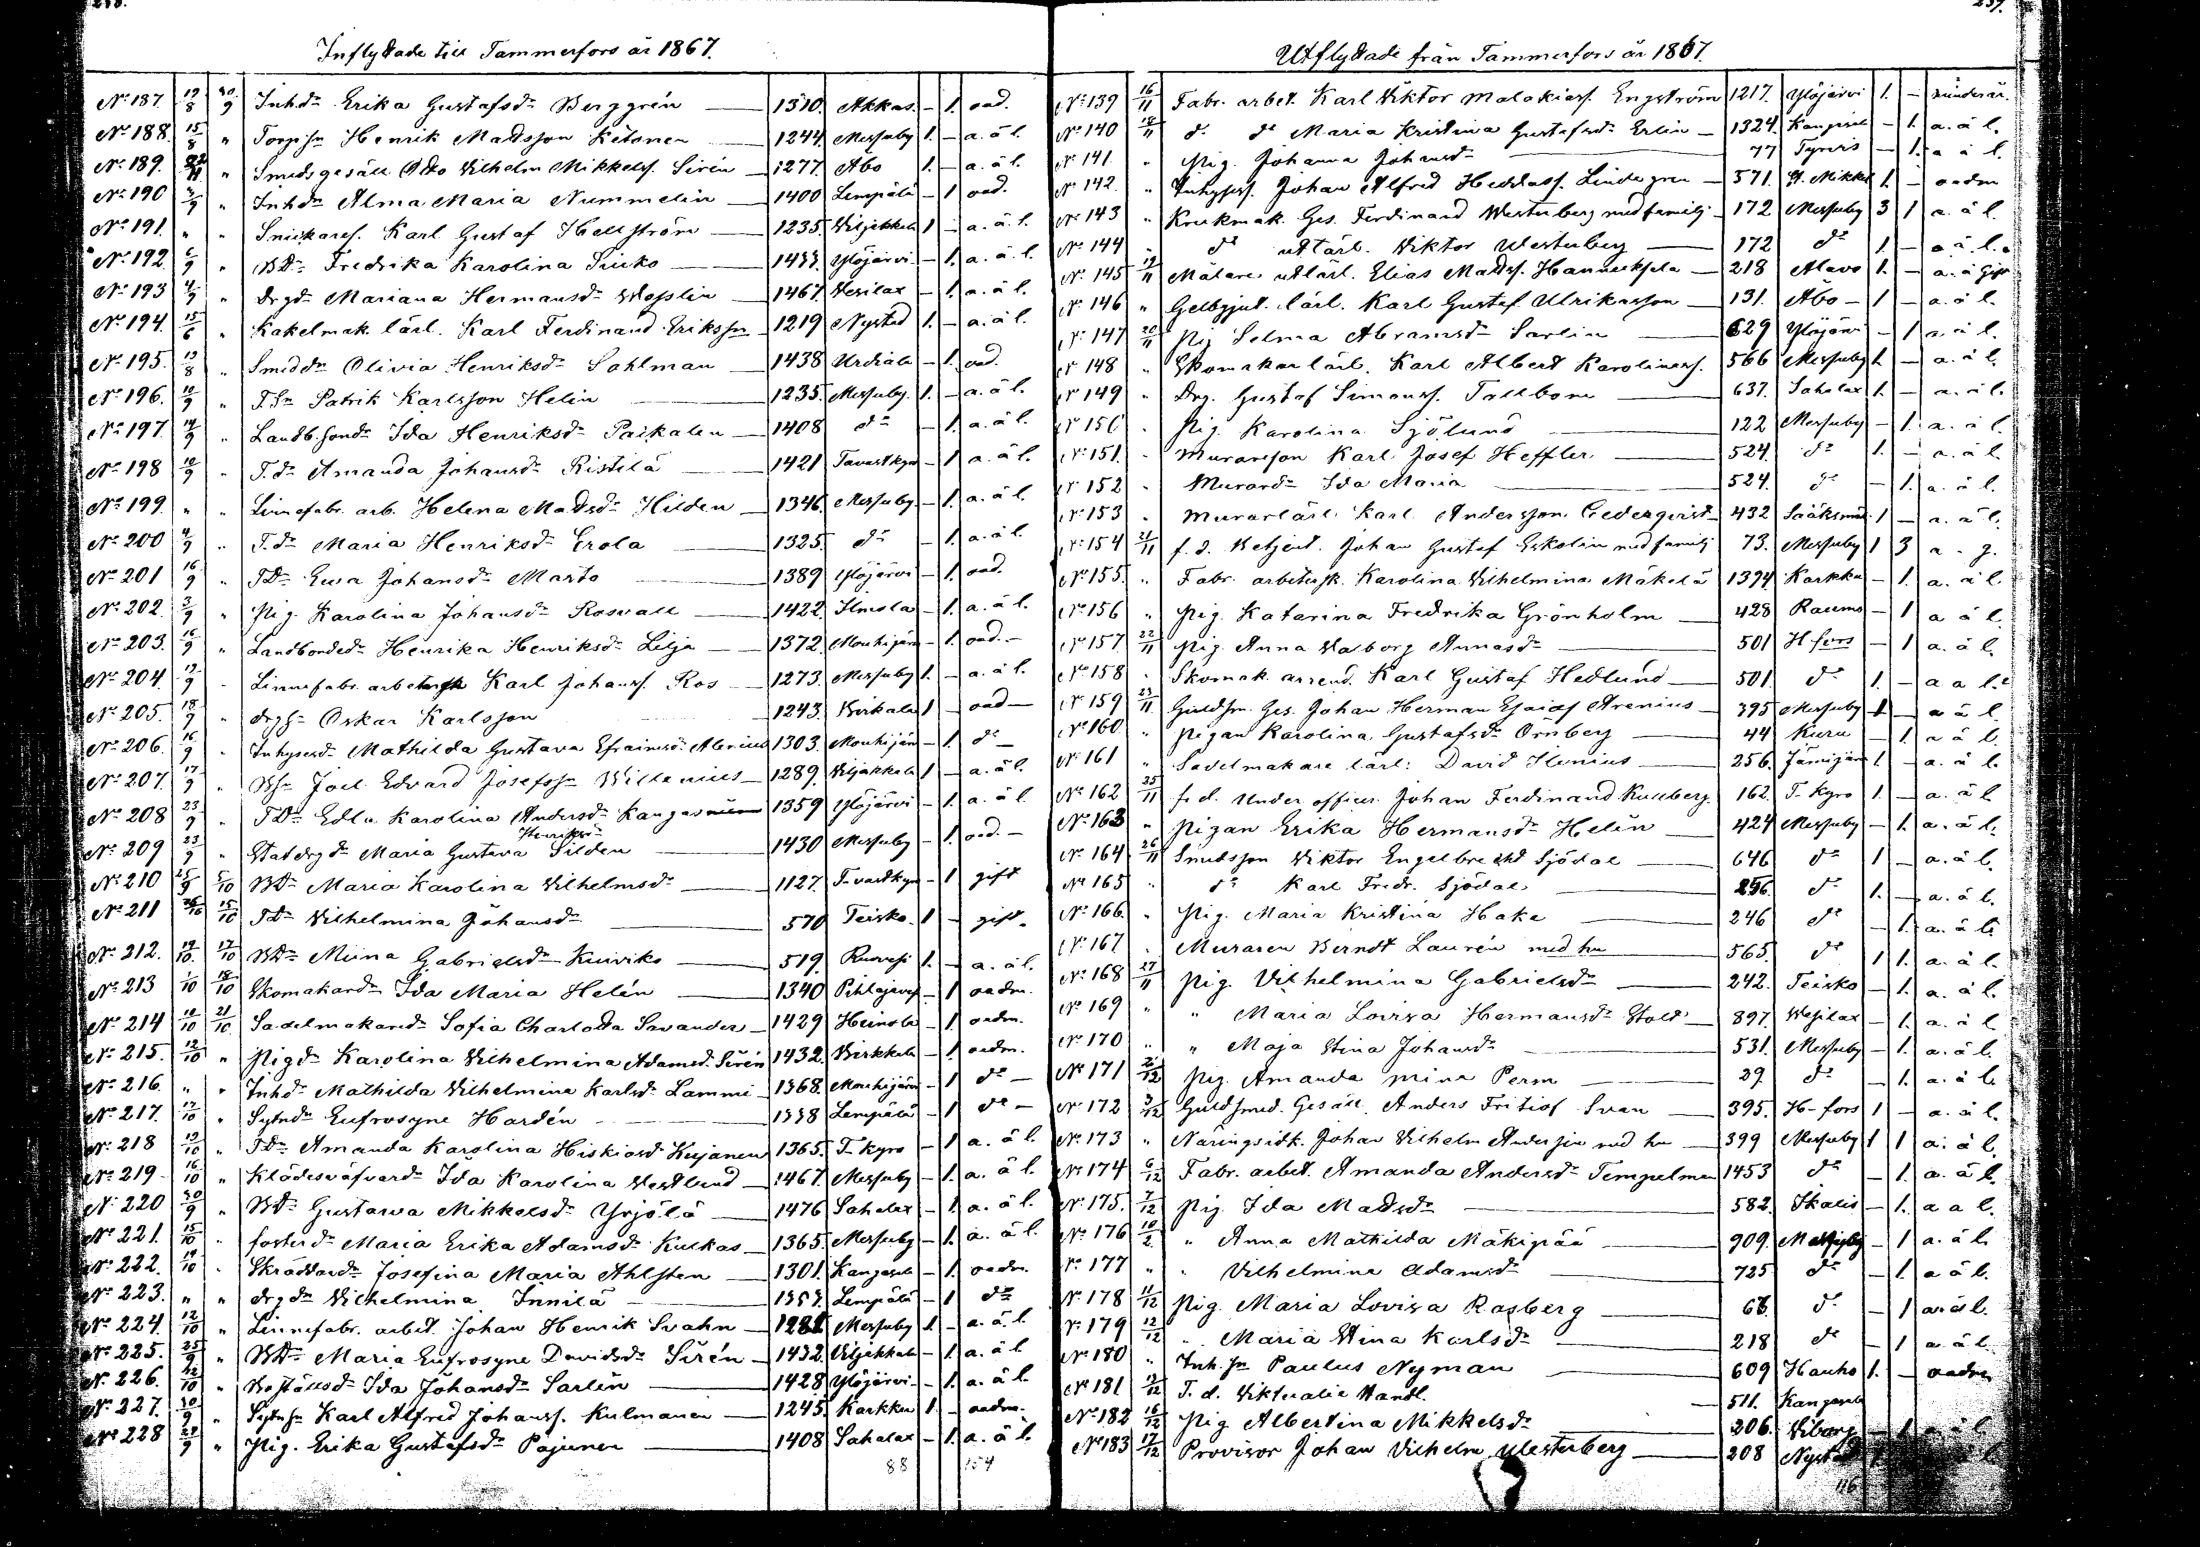 Inflyttade till Tammerfors år 1867.
No 187. 19/8 30/9 Inh.dr Erika Gustafsdr Berggrén 1310. Akkas. – 1. oad.
No 188. 15/8 " Torp.sn Henrik Mattsson Ketonen 1244. Messuby 1. – a. ä l.
No 189. " Smedsgesäll Otto Vilhelm Mikkelss. Sirén 1277. Åbo 1. – a. ä l.
No 190 3/9 " Inhdr Alma Maria Nummelin 1400 Lempälä – 1 oad.
No 191. " " Snickares. Karl Gustaf Hellström 1235. Viljakkala 1 – a. ä l.
No 192. 6/9 " Bdr Fredrika Karolina Sinko Ylöjärvi – 1. a. ä l.
No 193 4/9 " drgdr Mariana Hermansdr 1467. Vesilax – 1 a. ä l.
No 194. 15/6 " Kakelmak. lärl. Karl Ferdinand Eriksson 1219 Nystad 1. – a. ä l.
No 195. 13/8 " Smeddr Olivia Henriksdr Sahlman 1438 Urdiala – 1. oad.
No 196. 10/9 " T.Sn Patrik Karlsson Helin 1235. Messuby. 1. – a. ä l.
No 197. 14/9 " Landb.sondr Ida Henriksdr Paikalen 1408 do – 1. a. ä l.
No 198 10/9 " T.dr Amanda Johansdr Ristilä 1421 Tavastkyro – 1 a. ä l.
No 199. " " Linnefabr. arb. Helena Mattsdr Hilden 1346. Messuby – 1. a. ä l.
No 200 4/9 " T.dr Maria Henriksdr Erola 1325. do – 1. a. ä l.
No 201 16/9 " Tdr Eva Johansdr Marto 1389 Ylöjärvi – 1. oad.
No 202. 3/9 " Pig. Karolina Johansdr Rosvall 1422. Ilmola – 1. a. ä l.
No 203. 16/9 " Landbondedr Henrika Henriksdr Lilja 1372. Mouhijärvi – 1. oad. –
No 204. 19/9 " Linnefabr. arbetersk Karl Johanss. Ros 1273. Messuby 1. – a. ä l.
No 205. 18/9 " drgsn Oskar Karlsson 1243. Birkala 1 – oad –
No 206. 16/9 " Inhysesdr Mathilda Gustava Efraimsdr Alenius 1303. Mouhijärvi – 1. do –
No 207. 17/9 " Bsn Joel Edvard Josefsson Willenius 1289. Viljakkala 1 – a. ä l.
No 208 23/9 " Tdr Edla Karolina Andersdr 1359 Ylöjärvi – 1. a. ä l.
Henriksdr
No 209 23/9 " Statdrgdr Maria Gustava Silden 1430 Messuby – 1. oad. –
No 210 25/9 5/10 Bdr Maria Karolina Vilhelmsdr 1127. T–vastkyro – 1 gift
No 211 15/10 Tdr Vilhelmina Johansdr 570 Teisko. 1 – gift.
No 212. 19/10. 17/10 Bdr Miina Gabrielsdr Kuiviko 519. Ruovesi 1. – a. ä l.
No 213 1/10 18/10 Skomakaredr Ida Maria Helén 1340 Pihlajavesi – 1 oadm.
No 214 18/10 21/10. Sadelmakaredr Sofia Charlotta Savander 1429 Heinola – 1. oadm.
No 215. 12/10 " Pigdr Karolina Vilhelmina Adamsd. Sirén 1432. Birkkala – 1. oadm.
No 216. " " Inhdr Mathilda Vilhelmina Karlsdr Lammi 1368. Mouhijärvi – 1 do –
No 217. 17/10 " Sytndr Eufrosyne Hardén 1338 Lempälä – 1 do –
No 218 19/10 " Tdr Amanda Karolina Hiskiasdr Kujanen 1365. T–kyro – 1 a. ä l.
No 219. 16/10 " Klädesväfvaredr Ida Karolina Westlund 1467. Messuby – 1. a. ä l.
No 220 30/9 " Bdr Gustava Mikkelsdr Yrjölä 1476 Sahalax – 1. a. ä l.
No 221. 15/10 " fosterdr Maria Erika Adamsdr Kukkas 1365. Messuby – 1. a. ä l.
No 222. 19/10 " Skräddaredr Josefina Maria Ahlsten 1301. Kangasala – 1. oadm.
No 223. " " drgdr Vilhelmina Innilä 1353. Lempälä – 1 do
No 224. 12/10 " Linnefabr. arbet. Johan Henrik Svahn Messuby 1. – a. ä l.
No 225. 25/9 " Bdr Maria Eufrosyne Davidsdr Sirén 1432. Viljakkala – 1. a. ä l.
No 226. 22/10 " Boställsdr Ida Johansdr Sarlén 1428 Ylöjärvi – 1. a. ä l.
No 227. 30/9 " Sytn.sn Karl Alfred Johanss. Kulmanen 1245. Karkku 1. – oadm.
No 228 28/9 " Pig. Erika Gustafsdr Pajunen 1408 Sahalax – 1. a. ä l.
88 154
237.
Utflyttade från Tammerfors år 1867.
No 139 16/11 Fabr. arbet. Karl Viktor Malakiass. Engström 1217. Ylöjärvi 1. –
No 140 18/11 d. do Maria Kristina Gustafsdr Erlin 1324. Kangasala – 1. a. ä l.
No 141. " Pig. Johanna Johansdr 77 Tyrvis – 1. a. ä l.
No 142. " Inhysess. Johan Alfred Lindegren 571. St. Mikkel 1. – oadm
No 143 " Krukmak. Ges. Ferdinand Westerberg med familj 172 Messuby 3 1 a. ä l.
No 144 " do utlärl. Viktor Westerberg 172 do 1. – a. ä l.
No 145 19/11 Målare utlärl. Elias Mattss. Hannuksela 218 Alavo 1. – a. ä gift
No 146 " Gelbgjut. lärl. Karl Gustaf Ulriksson 131. Åbo – 1 – a. ä l.
No 147 20/11 Pig Selma Abramsdr Sarlin 629 Ylöjärvi – 1 a. ä l.
No 148 " Skomakar lärl. Karl Albert Karolinass. 566 Messuby 1. – a. ä l.
No 149 " Drg. Gustaf Simonss. Tallbom 637. Sahalax 1. – a. ä l.
No 150 " Pig. Karolina Sjölund 122 Messuby – 1. a. ä l.
No 151. " Mureresson Karl Josef Heffler 524. do 1. – a. ä l.
No 152 " Murardr Ida Maria 524. do – 1. a. ä l.
No 153 " Murarlärl. Karl Andersson Cederqvist 432 Sääksmäki 1 – a. ä l.
No 154 21/11 f. d. Betjent. Johan Gustaf Eskolin med familj 73. Messuby 1 3 a. g.
No 155. " Fabr. arbetersk. Karolina Vilhelmina Mäkelä 1394. Karkku – 1. a. ä l.
No 156 " Pig Katarina Fredrika Grönholm 428 Raumo – 1 a ä l.
No 157 22/11 Pig. Anna Walborg Annasdr 501 H–fors – 1 a. ä l.
No 158 " Skomak. arrend. Karl Gustaf Hedlund 501. do 1. – a ä l.
No 159 23/11 Guldsm. Ges. Johan Herman Esaias Arenius 395 Messuby 1 – a ä l.
No 160 " Pigan Karolina Gustafsdr Örnberg 44 Kuru – 1. a ä l.
No 161 " Sadelmakare lärl: David Ilenius 256. Jämijärvi 1. – a. ä l.
No 162 25/11 f. d. Under officer Johan Ferdinand Kullberg 162. T–kyro 1. – a. ä l
No 163 " Pigan Erika Hermansdr Helén 424 Messuby – 1. a. ä l.
No 164 26/11 Smedsson Viktor Engelbrekt Sjödal 646 do 1 – a. ä l.
No 165 " do Karl Fredr. Sjödal 256. do 1. – a. ä l.
No 166. " Pig. Maria Kristina Hake 246 do – 1. a. ä l.
No 167 " Muraren Berndt Laurén med hu 565. do 1 1. a. ä l.
No 168 27/11 Pig. Vilhelmina Gabrielsdr 242. Teisko – 1. a. ä l.
No 169 " " Maria Lovisa Hermansdr Stolt 897. Vesilax – 1. a. ä l
No 170 " " Maja Stina Johansdr 531. Messuby – 1. a. ä l.
No 171 2/12 Pig. Amanda Mina Perm 29. do – 1. a. ä l.
No 172 3/12 Guldsmed. Gesäll. Anders Fritiof Svan 395. H–fors 1 – a. ä l.
No 173 " Näringsidk. Johan Vilhelm Andersin med hu 399 Messuby 1 1 a. ä l.
No 174 6/12 Fabr. arbet. Amanda Andersdr Tempelman 1453 do – 1. a. ä l.
No 175. 7/12 Pig. Ida Mattsdr 582. Ikalis – 1. a ä l.
No 176 10/12 " Anna Mathilda Mäkipää 909. Messuby – 1 a. ä l.
No 177 " " Vilhelmina Adamsdr 725 do – 1. a ä l.
No 178 11/12 Pig. Maria Lovisa Rosberg do – 1 a. ä l.
No 179 12/12 " Maria Stina Karlsdr 218 do – 1 a. ä l.
No 180 " Inh.sn Paulus Nyman 609 Hauho 1. – oadm
No 181 13/12 T. d. Viktualie Handl. 511. Kangasala
No 182 16/12 Pig Albertina Mikkelsdr 206. Viborg – 1
No 183 17/12 Provisor Johan Vilhelm Westerberg 208 Nystad
116